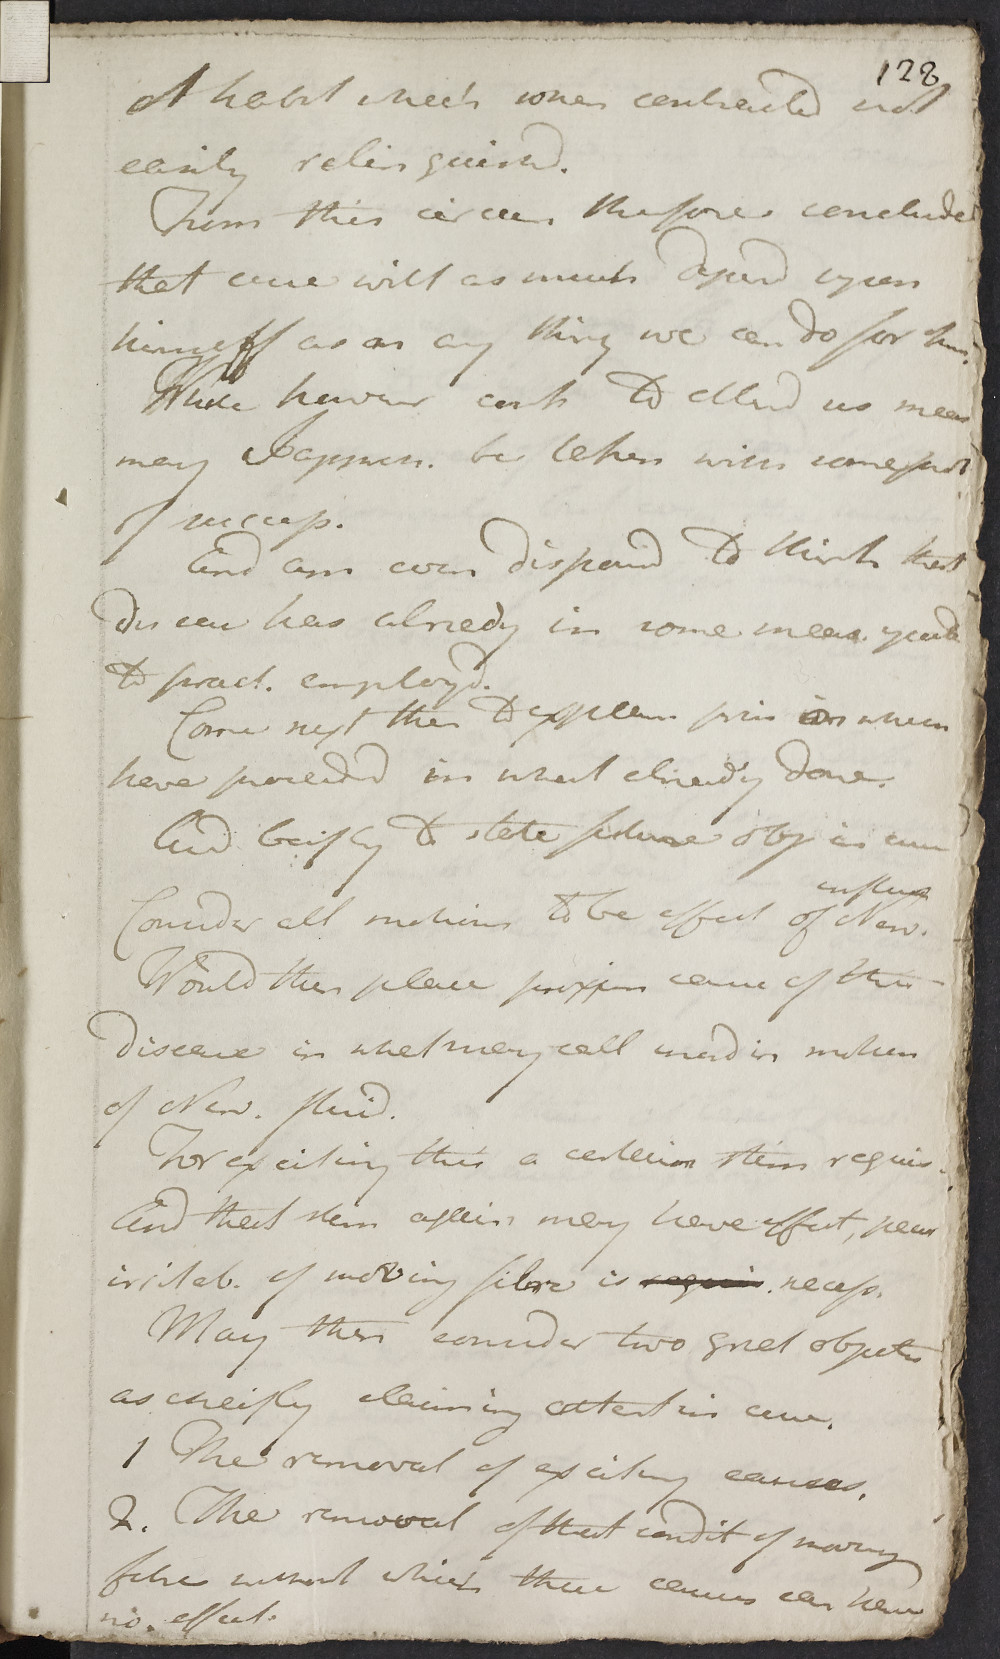 128
A habit which when contracted not
easily relinquished.
From this circum therefore conclude
that cure will as much depend upon
himself as on any thing we can do for him.
While however both to attend us means
may happen. be taken with some prob
of success.
And am even disposed to think that
disease has already in some meas. yeild
to pract. employd.
Come next then to explain prin on which
have proceeded in what already done.
And briefly to state future obj in cure
influence
Consider all motions to be effect of Nerv.
Would then place proxim cause of this
disease in what may call inordin motion
of Nerv. fluid.
For exciting this a certain stim requis.
And that stim again may have effect, pecul
irritab. of moving fibre is requis. necess.
May then consider two great objects
as cheifly claiming attent in cure.
1 The removal of exciting causes.
2. The removal of that condit of moving
fibre without which these causes can have
no. effect.